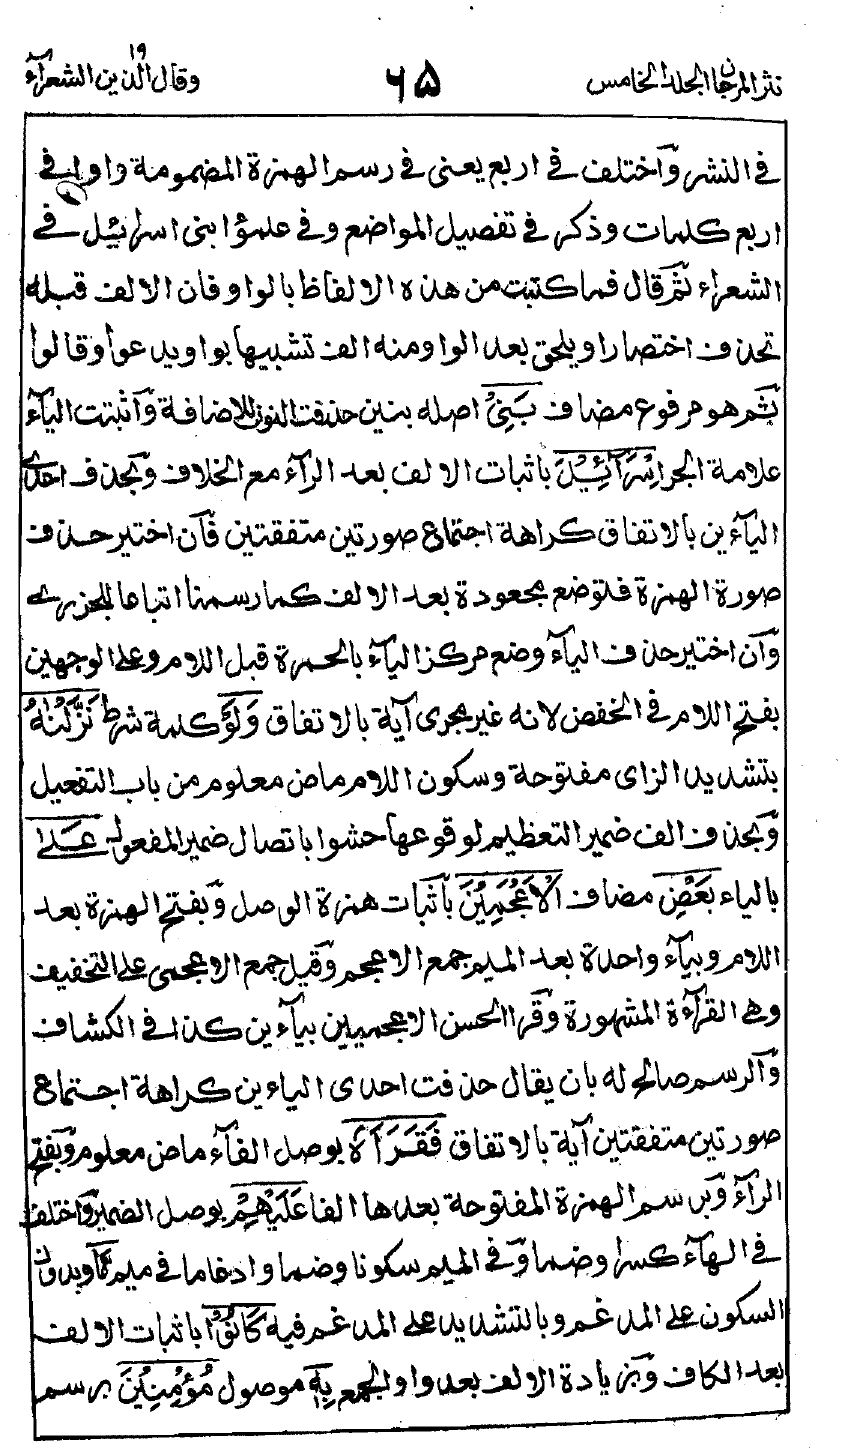 نثر المرجان الجلد الخامس ٦٥ وقال الذين ١٩ الشعرآء
في النشر وآختلف في اربع يعنى في رسم الهمزة المضمومة واوا في
اربع كلمات وذكر في تفصيل المواضع وفي علمؤا بنى اسرائيل في
الشعراء ثم قال فما كتبت من هذه الالفاظ بالواو فان الالف قبله
تحذف اختصارا ويلحق بعد الواو منه الف تشبيها بواو يدعوا وقالوا
ثم هو مرفوع مضاف بَنِيْ اصله بنين حذفت النون للاضافة وآثبتت اليآء
علامة الجر اِسْرَآئِيْلَ باثبات الالف بعد الرآء مع الخلاف وبحذف احدى
اليآءين بالاتفاق كراهة اجتماع صورتين متفقتين فآن اختير حذف
صورة الهمزة فلتوضع مجعودة بعد الالف كما رسمنا اتباعا للجزري
وآن اختير حذف اليآء وضع مركز اليآء بالحمرة قبل اللام وعلى الوجهين
بفتح اللام في الخفض لانه غير مجرى آية بالاتفاق وَلَوْ كلمة شرط نَزَّلْنٰهُ
بتشديد الزاى مفتوحة وسكون اللام ماض معلوم من باب التفعيل
وبحذف الف ضمير التعظيم لوقوعها حشوا باتصال ضمير المفعول عَلٰى
بالياء بَعْضِ مضاف الْاَعْجَمِيْنَ باثبات همزة الوصل وبفتح الهمزة بعد
اللام وبيآء واحدة بعد الميم جمع الاعجم وقيل جمع الاعجمى على التخفيف
وهي القرآءة المشهورة وقرا الحسن الاعجميين بيآءين كذا في الكشاف
وآلرسم صالح له بان يقال حذفت احدى الياءين كراهة اجتماع
صورتين متفقتين آية بالاتفاق فَقَرَاَهٗ بوصل الفآء ماض معلوم وبفتح
الرآء وبرسم الهمزة المفتوحة بعدها الفا عَلَيْهِمْ بوصل الضمير وآختلف
في الهآء كسرا وضما وفي الميم سكونا وضما وادغاما في ميم مَّا وبدون
السكون على المدغم وبالتشديد على المدغم فيه كَانُوْا باثبات الالف
بعد الكاف وبزيادة الالف بعد واو الجمع بِهٖ موصول مُؤْمِنِيْنَ برسم